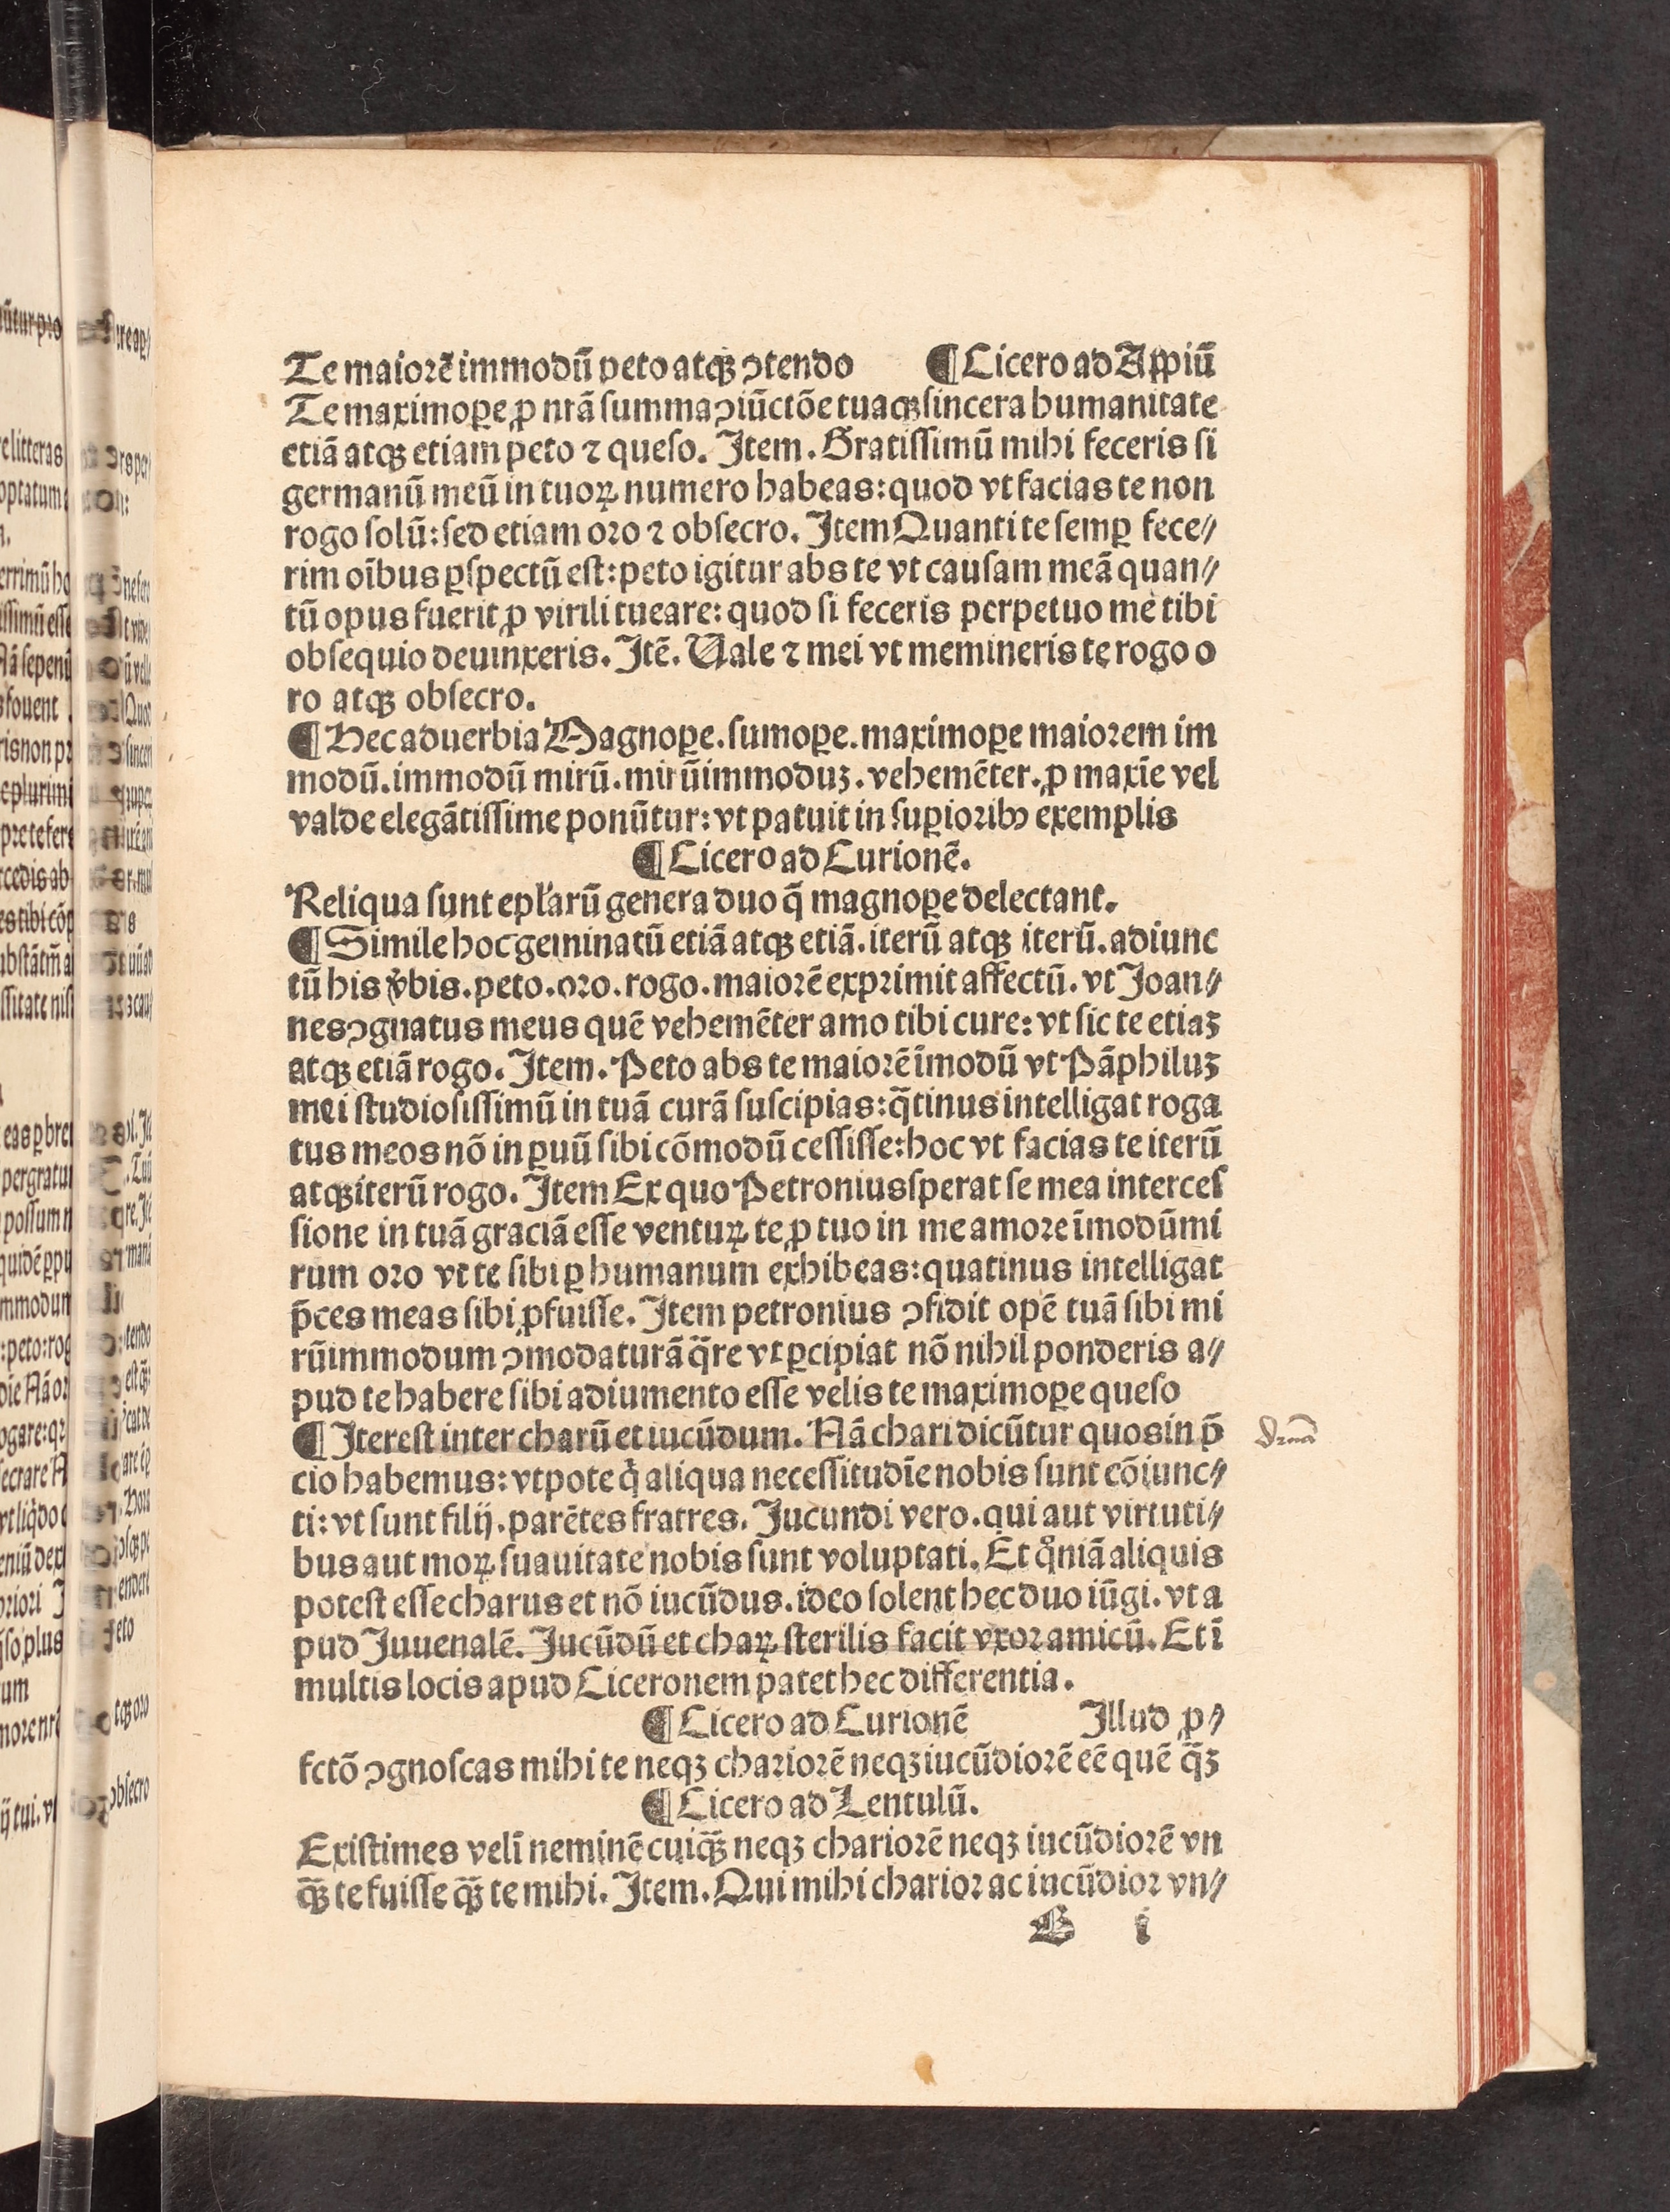 Te maiorē immodū peto atqꝫ ↄtendo ¶ Cicero ad Appiū
Te maximopꝑe ꝓ nrā summa ↄiūctōe tuaqꝫ sincera humanitate
etiā atqꝫ etiam peto ⁊ queſo. Item. Gratiſſimū mihi feceris ſi
germanū meū in tuoꝝ numero habeas: quod vt facias te non
rogo ſolū: ſed etiam oro ⁊ obſecro. Item Quanti te ſemꝑ fece⸗
rim oībus ꝑſpectū eſt: peto igitur abs te vt cauſam meā quan⸗
tū opus fuerit ꝓ virili tueare: quod ſi feceris perpetuo me tibi
obſequio deuinxeris. Itē. Uale ⁊ mei vt memineris te rogo o
ro atqꝫ obſecro.
¶ Hec aduerbia Magnoꝑe. ſumoꝑe. maximoꝑe maiorem im
modū. immodū mirū. mirūimmoduꝫ. vehemēter. ꝓ maxīe vel
valde elegātiſſime ponūtur: vt patuit in ſuꝑioribꝰ exemplis
¶ Cicero ad Curionē.
Reliqua ſunt epꝉarū genera duo q̄ magnoꝑe delectant.
¶ Simile hoc geminatū etiā atqꝫ etiā. iterū atqꝫ iterū. adiunc
tū his v̾bis. peto. oro. rogo. maiorē exprimit affectū. vt Joan⸗
nes ↄgnatus meus quē vehemēter amo tibi cure: vt ſic te etiaꝫ
atqꝫ etiā rogo. Item. Peto abs te maiorē īmodū vt Pāphiluꝫ
mei ſtudioſiſſimū in tuā curā ſuſcipias: q̄tinus intelligat roga
tus meos nō in ꝑuū ſibi cōmodū ceſſiſſe: hoc vt facias te iterū
atqꝫ iterū rogo. Item Ex quo Petronius ſperat ſe mea interceſ
ſione in tuā graciā eſſe ventuꝝ te ꝓ tuo in me amore īmodū mi
rum oro vt te ſibi ꝑ humanum exhibeas: quatinus intelligat
p̄ces meas ſibi ꝓfuiſſe. Item petronius ↄfidit opē tuā ſibi mi
rūimmodum ↄmodaturā q̄re vt ꝑcipiat nō nihil ponderis a⸗
pud te habere ſibi adiumento eſſe velis te maximoꝑe queſo
¶ Itereſt inter charū et iucūdum. Nā chari dicūtur quos in p̄
cio habemus: vtpote qͥ aliqua neceſſitudīe nobis ſunt cōiunc⸗
ti: vt ſunt filij. parētes fratres. Jucundi vero. qui aut virtuti⸗
bus aut moꝝ ſuauitate nobis ſunt voluptati. Et qͦniā aliquis
poteſt eſſe charus et nō iucūdus. ideo ſolent hec duo iūgi. vt a
pud Juuenalē. Jucūdū et chaꝝ ſterilis facit vxor amicū. Et ī
multis locis apud Ciceronem patet hec differentia.
¶ Cicero ad Curionē Illud ꝓ⸗
fctō ↄgnoſcas mihi te neqꝫ chariorē neqꝫ iucūdiorē eē quē q̄ꝫ
¶ Cicero ad Lentulū.
Exiſtimes velī neminē cuiq̄ꝫ neqꝫ chariorē neqꝫ iucūdiorē vn
q̄ꝫ te fuiſſe q̄ꝫ te mihi. Item. Qui mihi charior ac iucūdior vn⸗
B i